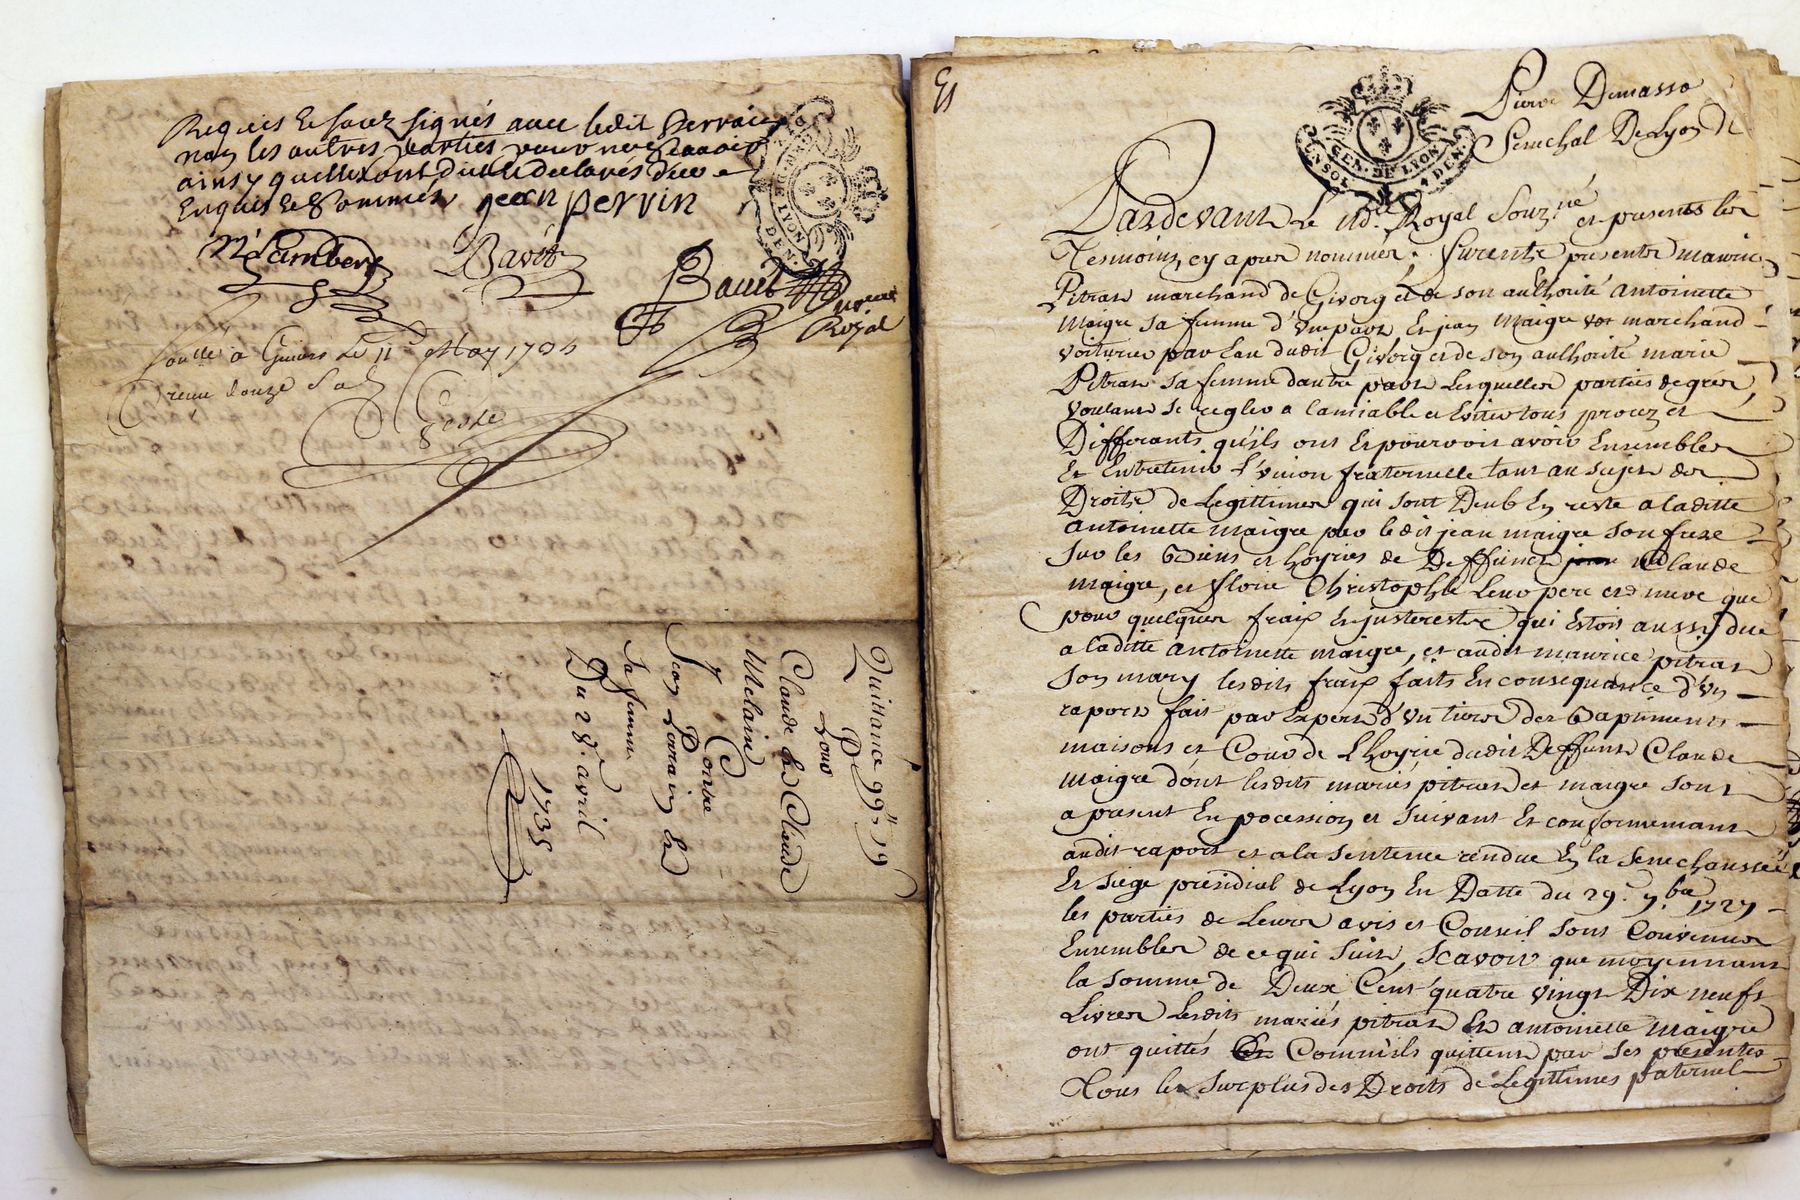 Requis de soubz signés avec ledit Pervain
non les autres parties pour ne scavoir
ainsy quelles ont dit et declarés de ce
Enquis et Sommés jean pervin
Bavet
Bauet
Royal
a Givors Le 11 May 1735
receu douze sols
GEN. DE LYON
DEN.
Quittance 99 19
Pour
Claude
Sa femme
Du 28 avril
1735
Pierre Demasso
Senechal De Lyon
GEN. DE LYON
UN SOL 4 DEN.
Pardevant Le Nore Royal Souzné et presents les
Tesmoins cy apres nommés. furent presents maurice
Pitrat marchand de Givors et de son authorité antoinette
Maigre sa femme d'une part Et jean Maigre marchand
voiturier par Eau dudit Givors et de son authorité marie
Pitrat sa femme dautre part Lesquelles parties de gré
voulant se regler a lamiable et Eviter tous procez et
Differants quils ont Et pourroit avoir Ensembles
Et Entretenir L'union fraternelle tant au sujet des
Droits de Legittimes qui sont Deub En reste a laditte
Antoinette maigre par ledit jean maigre son frere
sur les Biens et hoyries de Deffunct Claude
Maigre, et florie Christophle Leur pere et mere que
pour quelques fraix qui Estoit aussy due
a laditte antoinette maigre, et audit maurice pitrat
Son mary lesdits fraix faits En consequance d'un
raport fait par Expert d'un tiers des Baptiments
maisons et Cour de L'hoyrie dudit Deffunt Claude
Maigre dont lesdits mariés pitrat et maigre sont
a present En pocession et Suivant Et conformement
audit raport et a la Sentence rendue En la Senechaussée
Et Siege presidial de Lyon En Datte du 29. 7bre 1727
les parties de Leurs avis et Conseil sont Convenues
Ensembles de ce qui suit, Scavoir que moyennant
la somme de Deux Cent quatre vingt Dix neufs
Livres Lesdits mariés pitrat Et antoinette Maigre
ont quittés Comme ils quittent par ses presentes
Tous les surplus des Droits de Legittimes paternel